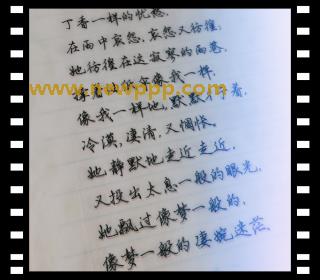 丁香一样的忧愁,
在雨中哀怨,哀怨又彷徨;
她彷徨在这寂寥的雨巷,
www.newppp.com
撑着油纸伞像我一样,
像我一样地,默默彳亍着,
冷漠,凄清,又惆怅。
她静默地走近走近,
又投出太息一般的眼光,
她飘过像梦一般的,
像梦一般的凄婉迷茫。